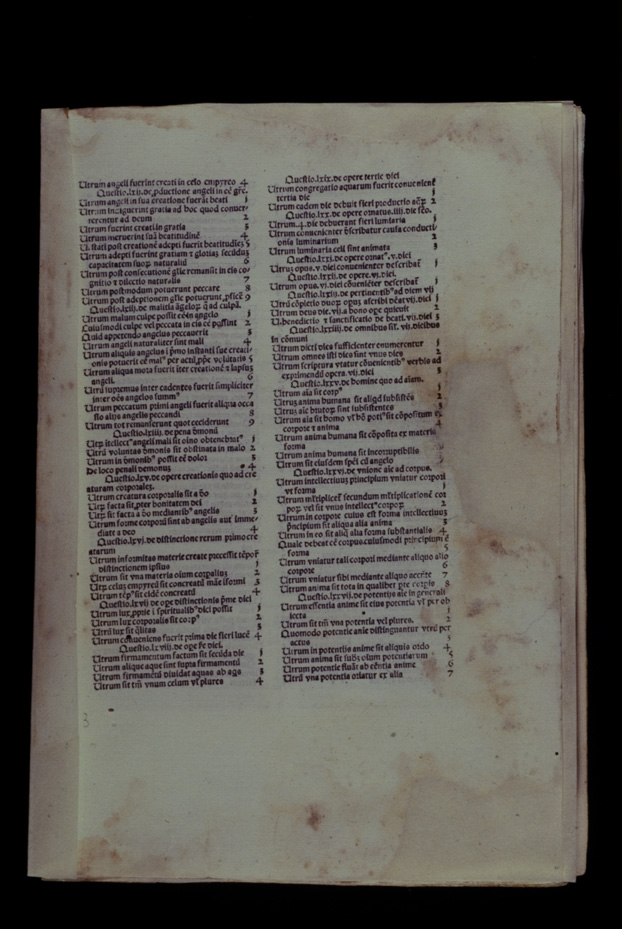 Utrum angeli fuerint creati in celo empyreo 4
Questio.lxii.de ꝓductione angeli in eē gře.
Utrum angeli in sua creatione fuerāt beati 1
Utrum indiguerint gratia ad hoc quod conuer
terentur ad deum 2
Utrum fuerint creati in gratia 3
Utrum meruerint suā beatitudinē 4
Utrum adepti fuerint gratiam ⁊ gloriā secūdū
capacitatem suoꝝ naturaliū 6
Utrum post consecutionē glīe remanserit in eis co
gnitio ⁊ dilectio naturalis 7
Utrum postmodum potuerunt peccare 8
Utrum post adeptionem glīe potuerunt ꝓficē 9
Questio.lxiii.de malitia āgeloꝝ q̄ ad culpā.
Utrum malum culpe possit eē in angelo 1
Cuiusmodi culpe vel peccata in eis eē possint 2
Quid appetendo angelus peccauerit 3
Utrum angeli naturaliter sint mali 4
Utrum aliquis angelus ī pmo instanti sue creati
onis potuerit eē malꝰ per actū ꝓpe volūtatis 5
Utrum aliqua mora fuerit iter creationē ⁊ lapsū
angeli. 6
Utrū supremus inter cadentes fuerit simpliciter
inter oēs angelos summꝰ 7
Utrum peccatum primi angeli fuerit aliqua occa
sio alijs angelis peccandi 8
Utrum tot remanserunt quot ceciderunt 9
Questio.lxiiii.de pena demonū
Utrū voluntas demonis sit obstinata in malo 2
Utrum in demonibꝰ possit eē dolor 3
De loco penali demonum 4
Questio.lxv.de opere creationis quo ad cre
aturam corporalem.
Utrum creatura corporalis sit a deo 1
Utrꝝ facta sit ꝓpter bonitatem dei 2
Utrꝝ sit facta a deo mediantibꝰ angelis 3
Utrum forme corporū sint ab angelis aut imme
diate a deo 4
Questio.lxvi.de distinctione rerum primo cre
atarum
Utrum informitas materie create precessit tempore
distinctionem ipsius 1
Utrum sit vna materia oium corpalium 2
Utrꝝ celum empyreū sit concreatū materie iformi 3
Utrum tempꝰ sit eidē concreatū 4
Questio.lxvii.de ope distinctionis pme diei
Utrum lux ꝓprie i spiritualibꝰ dici possit 1
Utrum lux corporalis sit corpꝰ 2
Utrū lux sit qlitas 3
Utrum conueniens fuerit prima die fieri lucē 4
Questio.lxviii.de ope scde diei.
Utrum firmamentum factum sit secūda die 1
Utrum alique aque sint supra firmamentū 2
Utrum firmamētū diuidat aquas ab aqs 3
Utrum sit tm̄ vnum celum vl̄ plures 4
3
Questio.lxix.de opere tertie diei
Utrum congregatio aquarum fuerit conueniēs
tertia die 1
Utrum eadem die debuit fieri productio 2
Questio.lxx.de opere ornatus.iiii.die
Utrum.4.die debuerunt fieri luminaria 1
Utrum conuenienter describatur causa conducti
onis luminarium 2
Utrum luminaria celi sint animata 3
Questio.lxxi.de opere ornatꝰ.v.diei
Utrꝰ opus.v.diei conuenienter describat 1
Questio.lxxii.de opere.vi.diei.
Utrum opus.vi.diei conueniēter describat 1
Questio.lxxiii.de pertinentibꝰ ad diem vii
Utrū cōpletio diuoꝝ opuꝝ ascribi debeat vii.diei 1
Utrum deus die.vii.a bono ope quieuit 2
Ut benedictio ⁊ sanctificatio debeat.vii.diei 3
Questio.lxxiiii.de omnibus sit.vii.diebus
in cōmuni
Utrum dicti dies sufficienter enumerentur 1
Utrum omnes isti dies sint vnus dies 2
Utrum scriptura vtatur cōuenientibꝰ verbis ad
exprimendū opera.vii.diei 3
Questio.lxxv.de homine quo ad aiam.
Utrum aīa sit corpꝰ 1
Utrum anima humana sit aliqd subsistēs 2
Utrum aīe brutoꝝ sint subsistentes 3
Utrum aīa sit homo vl̄ ho potiꝰ sit cōpositum ex
corpore ⁊ anima 4
Utrum anima humana sit cōposita ex materia
forma
Utrum anima humana sit incorruptibilis
Utrum sit eiusdem spēi cū angelo
Questio.lxxvi.de vnione aīe ad corpus.
Utrum intellectiuum principium vniatur corpori
vt forma 1
Utrum multiplicet secundum multiplicationē cor
poꝝ vel sit vnus intellectꝰ 2
Utrum in corpore cuius est forma intellectiuū
principium sit aliqua alia anima 3
Utrum in eo sit aliq̄ alia forma substantialis 4
Quale debeat eē corpus cuiusmodi principium ē
forma 5
Utrum vniatur tali corpori mediante aliquo alio
corpore 6
Utrum vniatur sibi mediante aliquo accīte 7
Utrum anima sit tota in qualibet pte corpis 8
Questio.lxxvii.de potentijs aīe in generali
Utrum essentia anime sit eius potentia
1
Utrum sit tm̄ vna potentia vel plures. 2
Quomodo potentie anime distinguantur
actus 3
Utrum in potentijs anime sit aliquis ordo 4
Utrum anima sit subm̄ oium potentiarum 5
Utrum potentie fluāt ab essentia anime 6
Utrū vna potentia oriatur ex alia 7